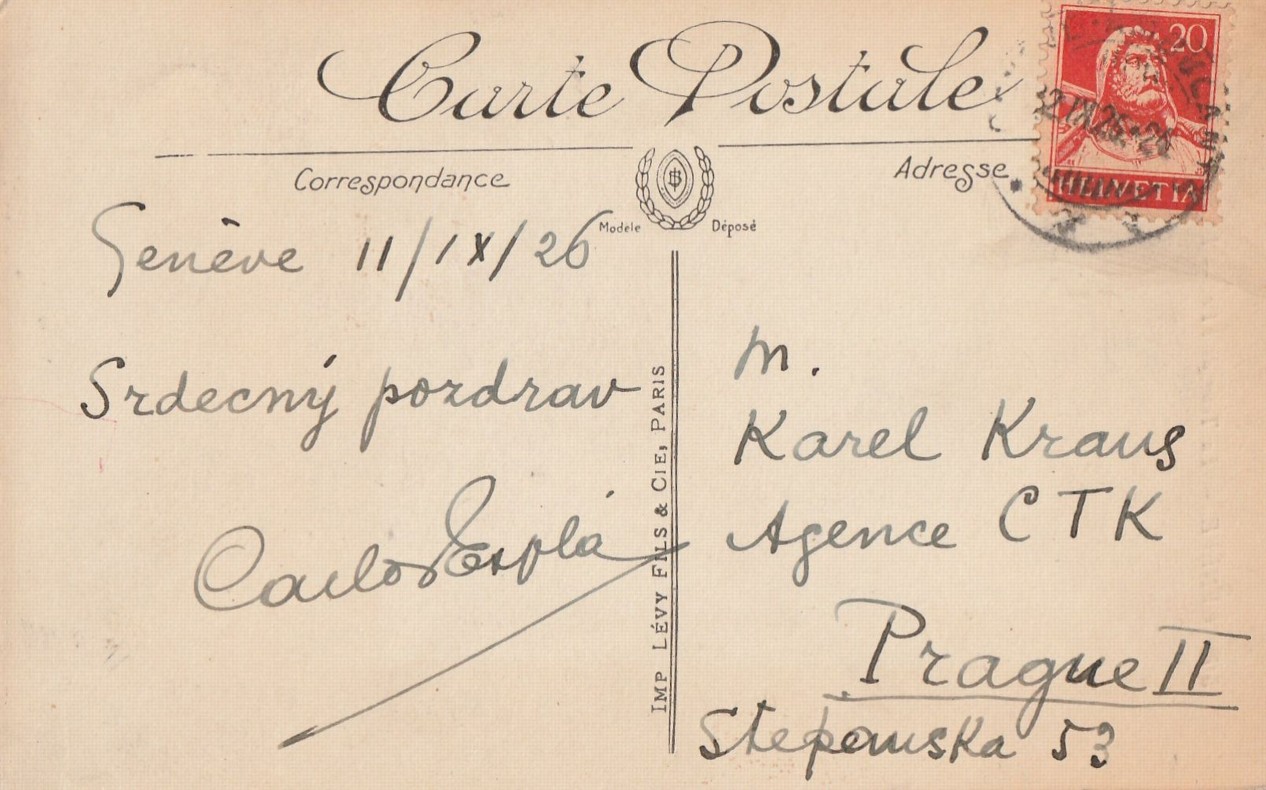 Carte Postale
Correspondance
Adresse
Modèle Déposé
20
HELVETIA
Genève 11/IX/26
Srdecný pozdrav
Carlos Esplá
IMP LÉVY FILS & CIE, PARIS
M.
Karel Kraus
Agence CTK
Prague II
Stepanska 53